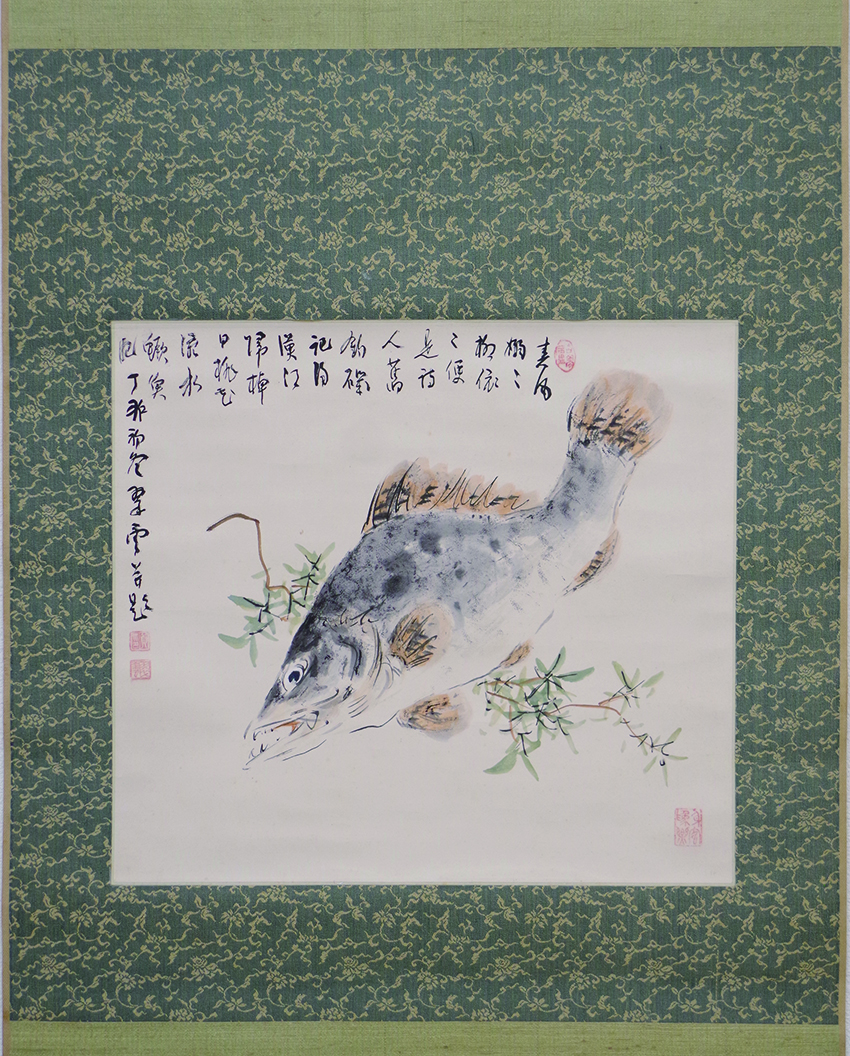 春風
々
柳依
々便
是詩
人舊
釣磯
記得
漢江
歸棹
日桃花
流水
鱖魚
肥 丁卯初冬翠雲并題